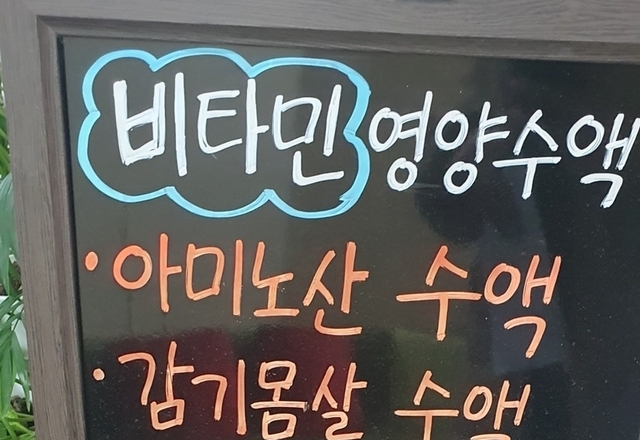 비타민 영양수액
·아미노산 수액
·감기몸살 수액